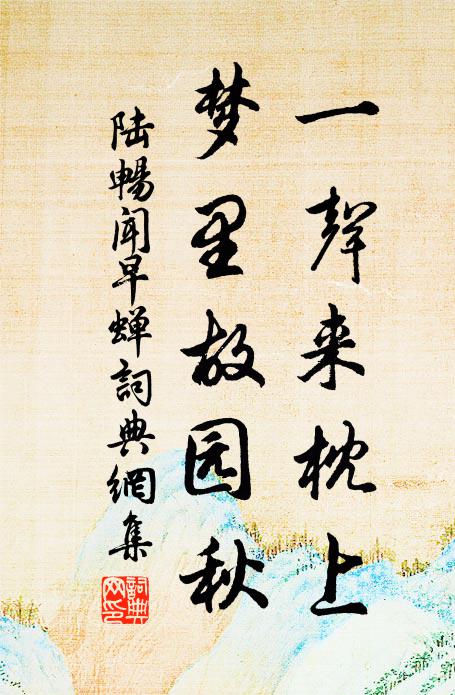 一聲来枕上
梦里故园秋
陆暢闻早蝉詞典網集
詞典